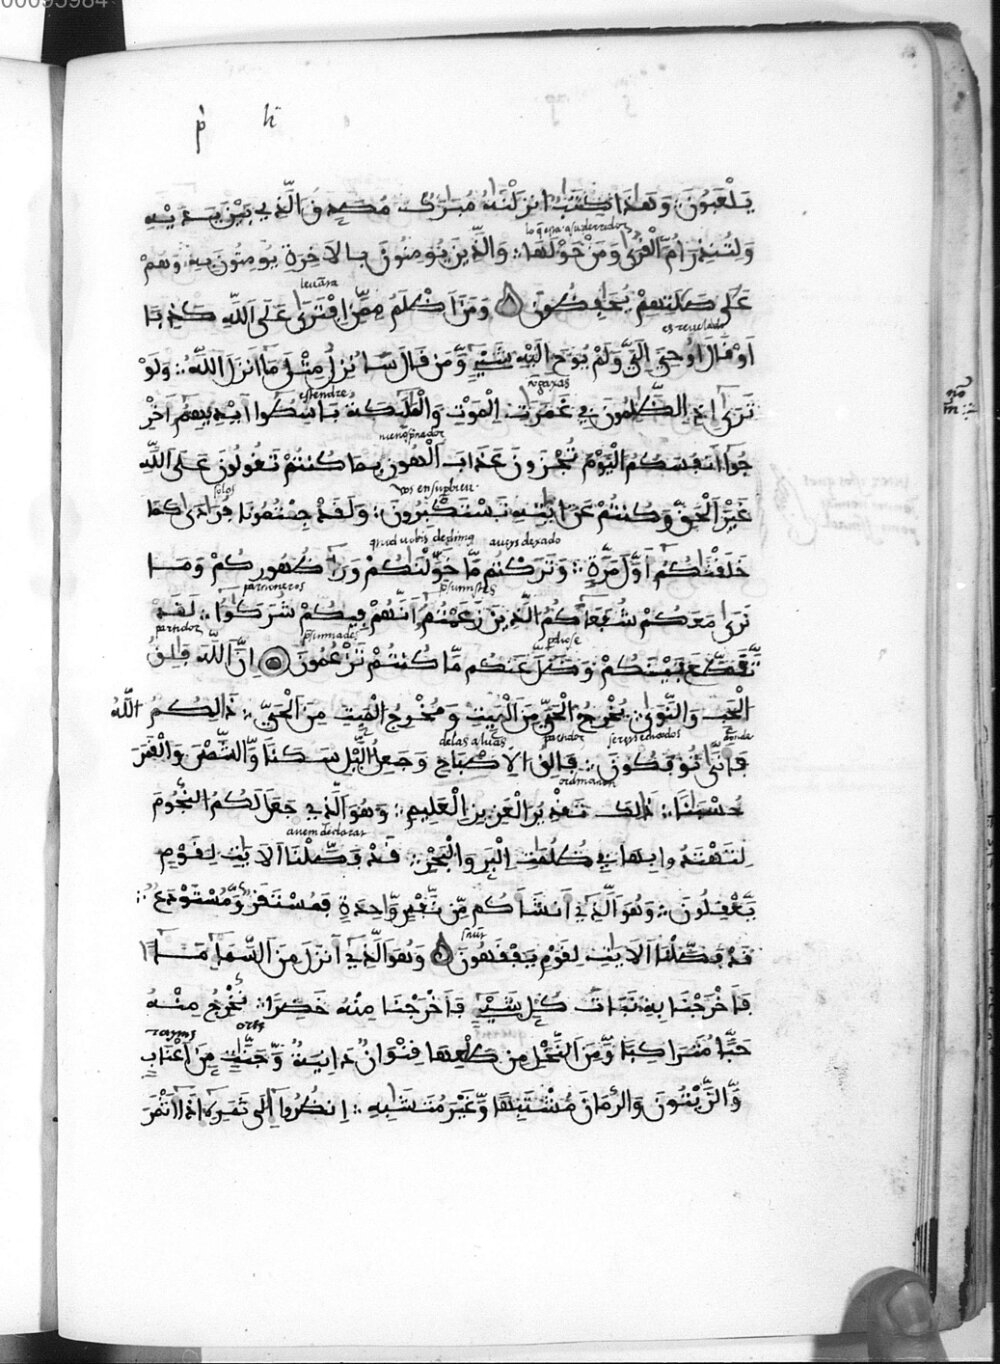 00095984
p̃ h̃
يَلْعَبُونَ وَهَٰذَا كِتَٰبٌ انزَلْنَٰهُ مُبَٰرَكٌ مُّصَدِّقُ الَّذِے بَيْنَ يَدَيْهِ
lo q̃ esta a su deredor
وَلِتُنذِرَ أُمَّ اَلْقُر۪ىٰ وَمَنْ حَوْلَهَا ۖ وَالَّذِينَ يُومِنُونَ بِالَاخِرَةِ يُومِنُونَ بِهِۦ وَهُمْ
leuãra
عَلَىٰ صَلَاتِهِمْ يُحَافِظُونَ وَمَنَ اَظْلَمُ مِمَّنِ اِفْتَرَىٰ عَلَى اَللَّهِ كَذِباً
es reuelado
اَوْ قَالَ أُوحِيَ إِلَيَّ وَلَمْ يُوحَ إِلَيْهِ شَيْءٌ وَّمَن قَالَ سَأُنزِلُ مِثْلَ مَا أَنزَلَ اَللَّهُ ۖ وَلَوْ
estendrẽ
تَرَىٰ إِذِ اِلظَّٰلِمُونَ فِي غَمَرَٰتِ اِلْمَوْتِ وَالْمَلَٰئِكَةُ بَاسِطُوا أَيْدِيهِمُ أَخْرِ
جُوا أَنفُسَكُمُ الْيَوْمَ تُجْزَوْنَ عَذَابَ اَلْهُونِ بِمَا كُنتُمْ تَقُولُونَ عَلَى اَللَّهِ
solos vos ensupbieu
غَيْرَ اَلْحَقِّ وَكُنتُمْ عَنَ اٰيَٰتِهِ تَسْتَكْبِرُونَ ۖ وَلَقَدْ جِئْتُمُونَا فُرَٰدَىٰ كَمَا
aueys dexado
خَلَقْنَٰكُمُ أَوَّلَ مَرَّةٍ ۖ وَتَرَكْتُم مَّا خَوَّلْنَٰكُمْ وَرَاءَ ظُهُورِكُمْ وَمَا
parçioneros
نَرَىٰ مَعَكُمْ شُفَعَاءَكُمُ الَّذِينَ زَعَمْتُمُ أَنَّهُمْ فِيكُمْ شُرَكَٰؤُا ۖ لَقَد
partidor pdiose
تَّقَطَّعَ بَيْنَكُمْ وَضَلَّ عَنكُم مَّا كُنتُمْ تَزْعُمُونَ إِنَّ اَللَّهَ فَٰلِقُ
الْحَبِّ وَالنَّوَىٰ ۖ يُخْرِجُ الْحَيَّ مِنَ اَلْمَيِّتِ وَمُخْرِجُ الْمَيِّتِ مِنَ اَلْحَيِّ ۖ ذَٰلِكُمُ اللَّهُ
delas aluas partidor sereys echados donde
فَأَنَّىٰ تُوفَكُونَ ۖ فَالِقُ الِاصْبَاحِ وَجَٰعِلُ الَّيْلِ سَكَناً وَّالشَّمْسَ وَالْقَمَرَ
حُسْبَٰناً ۖ ذَٰلِكَ تَقْدِيرُ الْعَزِيزِ اِلْعَلِيمِ ۖ وَهُوَ اَلَّذِي جَعَلَ لَكُمُ النُّجُومَ
auem declarar
لِتَهْتَدُوا بِهَا فِي ظُلُمَٰتِ اِلْبَرِّ وَالْبَحْرِ ۖ قَدْ فَصَّلْنَا اَلَايَٰتِ لِقَوْمٍ
يَّعْلَمُونَ ۖ وَهُوَ اَلَّذِي أَنشَأَكُم مِّن نَّفْسٍ وَّٰحِدَةٍ فَمُسْتَقَرٌّ وَّمُسْتَوْدَعٌ ۖ
قَدْ فَصَّلْنَا اَلَايَٰتِ لِقَوْمٍ يَفْقَهُونَ وَهُوَ اَلَّذِي أَنزَلَ مِنَ اَلسَّمَاءِ مَاءً
فَأَخْرَجْنَا بِهِ نَبَاتَ كُلِّ شَيْءٍ فَأَخْرَجْنَا مِنْهُ خَضِراً ۖ نُّخْرِجُ مِنْهُ
rayms orts
حَبّاً مُّتَرَاكِباً وَّمِنَ اَلنَّخْلِ مِن طَلْعِهَا قِنْوَانٌ دَانِيَةٌ وَّجَنَّٰتٍ مِّنَ اَعْنَٰبٍ
وَّالزَّيْتُونَ وَالرُّمَّانَ مُشْتَبِهاً وَّغَيْرَ مُتَشَٰبِهٍ ۖ اِنظُرُوا إِلَىٰ ثَمَرِهِ إِذَا أَثْمَرَ